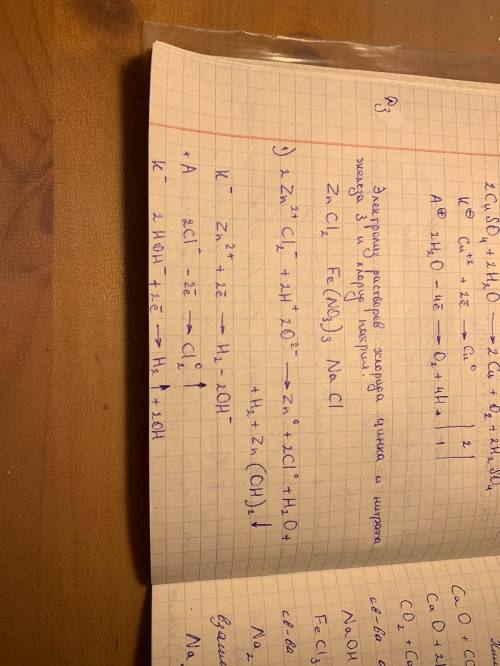 2CuSO4 + 2H2O → 2Cu + O2 + 2H2SO4
K⊖ Cu+2 + 2ē → Cu0 | 2 |
A⊕ 2H2O - 4ē → O2 + 4H+ | 1 |
Электролиз растворов хлорида цинка и нитрата
железа 3 и хлорид натрия.
ZnCl2 Fe(NO3)3 NaCl
1) 2Zn2+Cl2- + 2H+2O2- → Zn0 + 2Cl0 + H2O +
+ H2 + Zn(OH)2↓
K- Zn2+ + 2ē → H2 - 2OH-
+ A 2Cl- - 2ē → Cl20↑
K- 2HOH- + 2ē → H2↑ + 2OH
CaO + CO
CaO + 2
CO2 + C
св-ва
NaOH
FeCl3
св-ва
Na2
взаим
Na